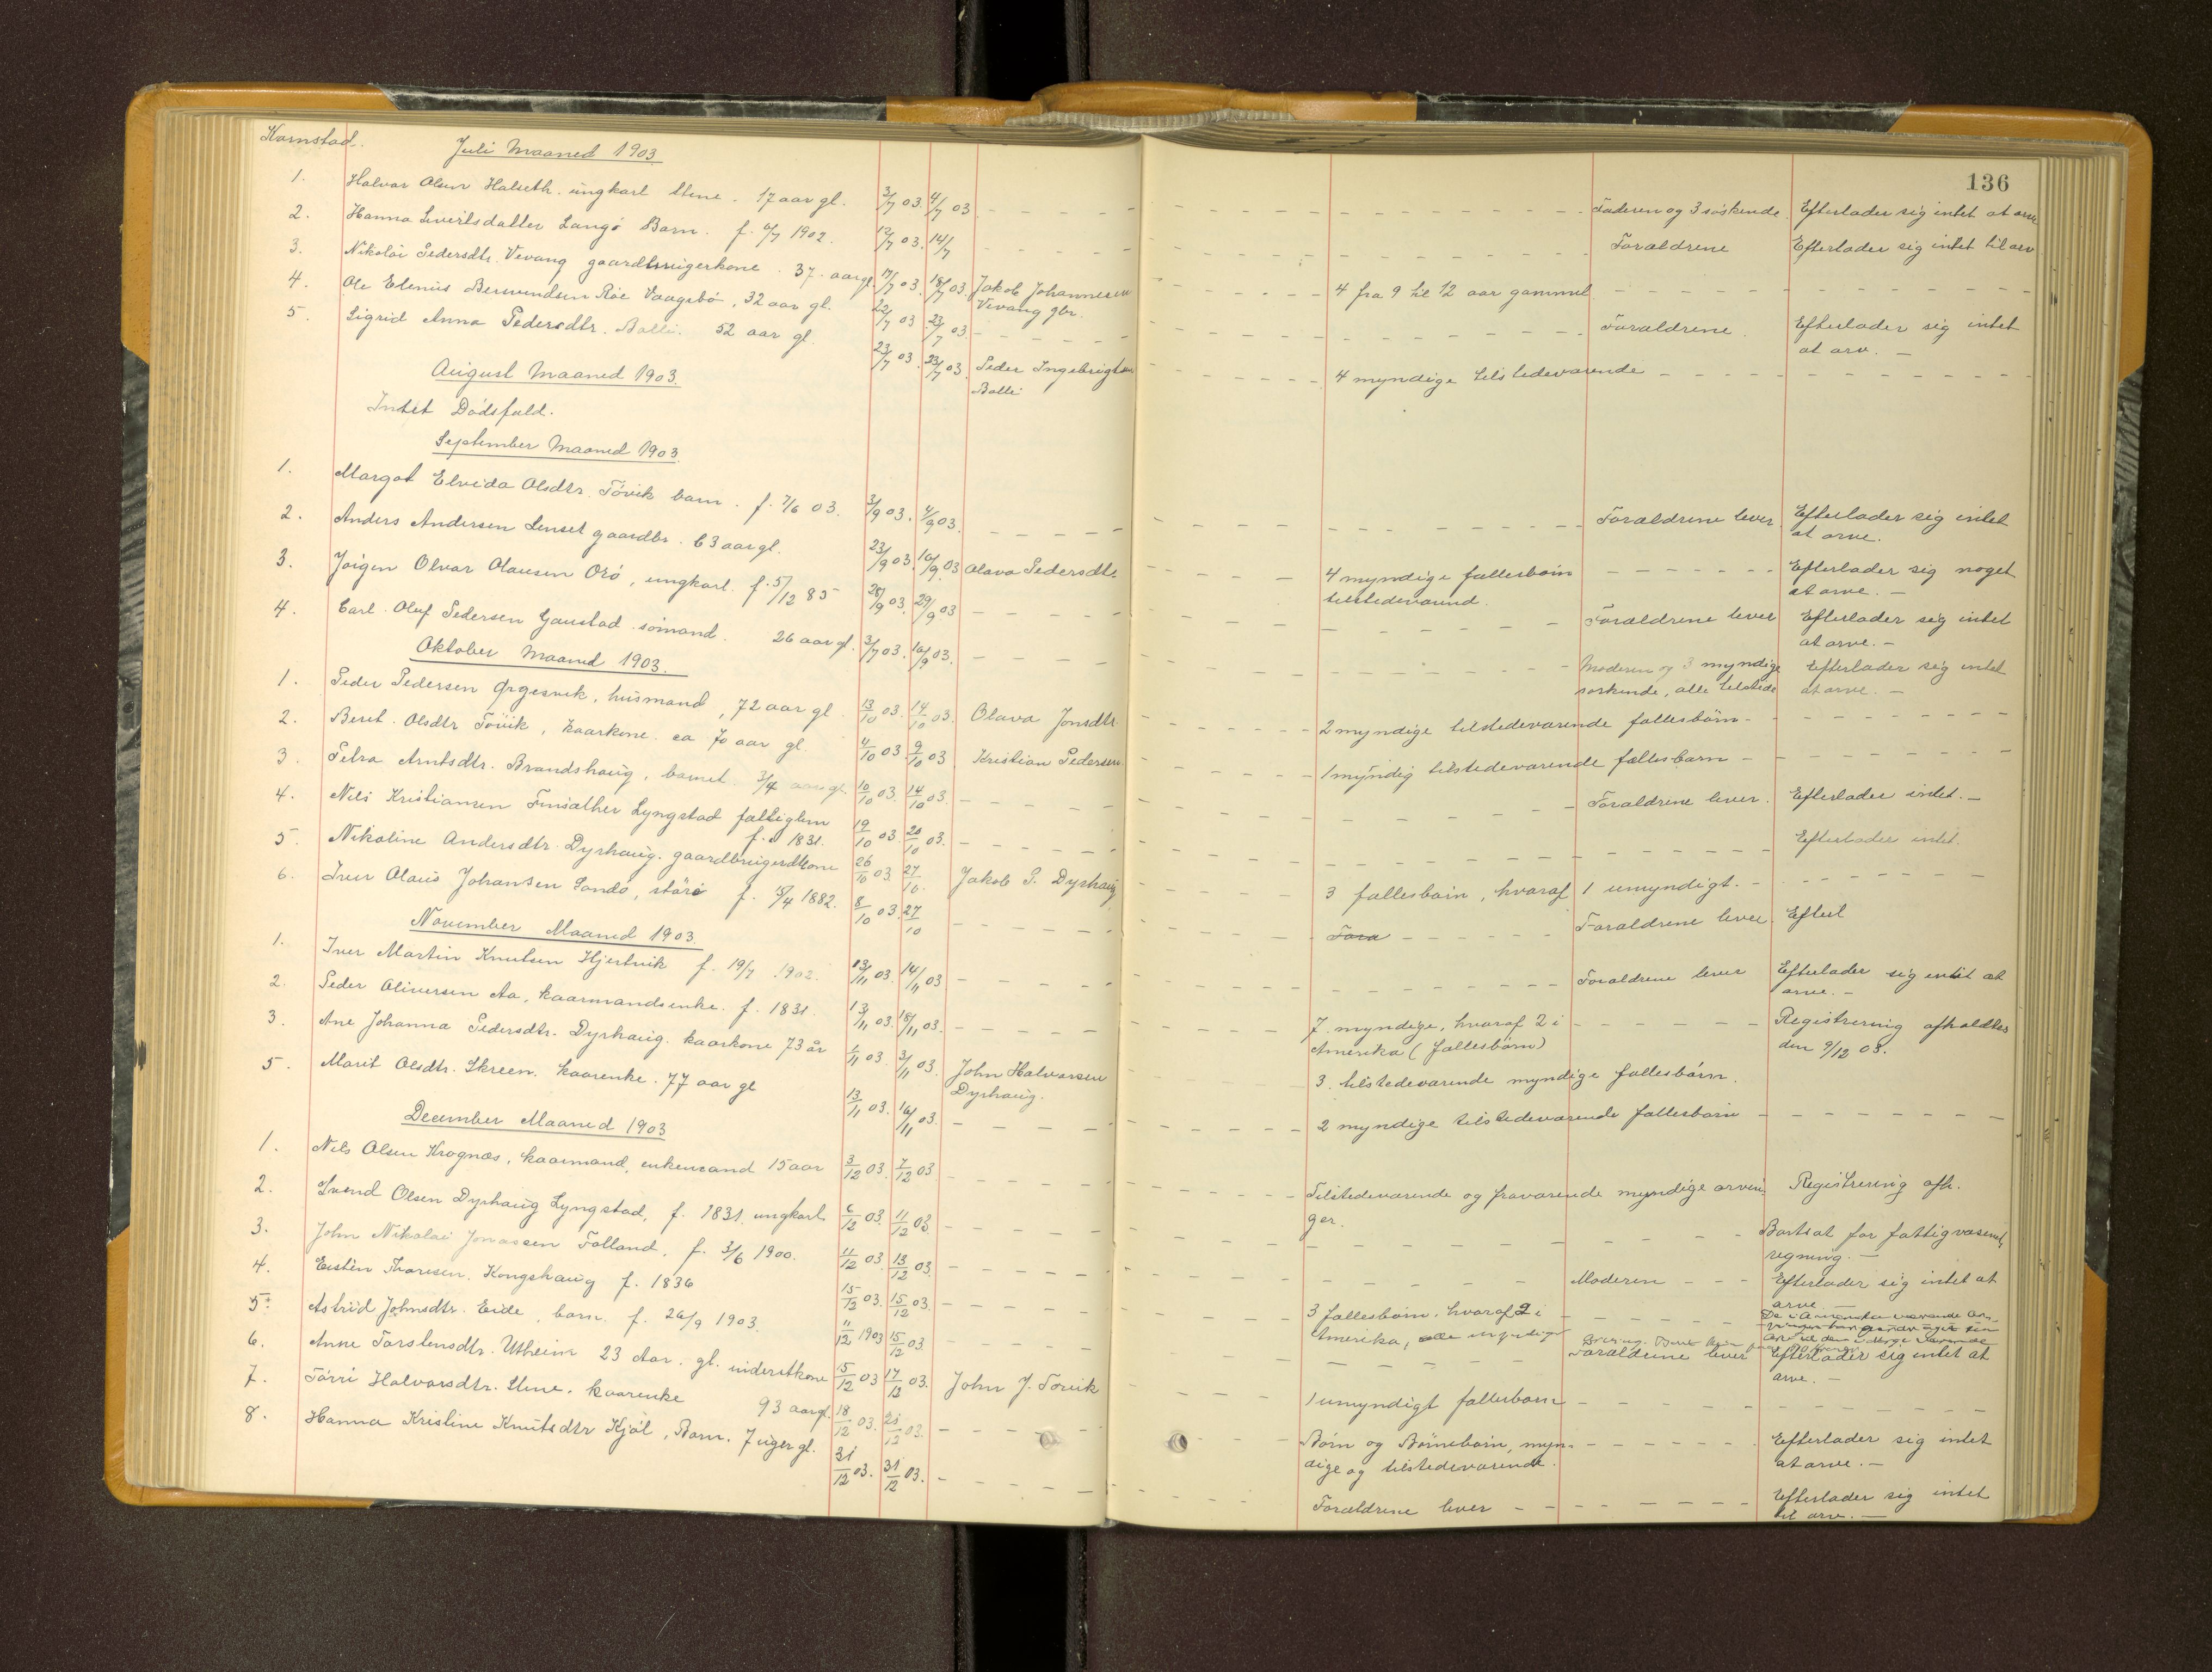 136
Kornstad.
Juli Maaned 1903
1. Halvar Olsen Halseth ungkarl Stene. 17 aar gl. 3/7 03. 4/7 03 Faderen og 3 søskende. Efterlader sig intet at arve
2. Hanna Sivertsdatter Langø Barn. f. 6/7 1902. 12/7 03. 14/7 Forældrene Efterlader sig intet til arv
3. Nikolai Pedersdtr. Vevang gaardbrugerkone. 37 aar gl. 17/7 03. 18/7 03. Jakob Johannesen 4 fra 9 til 12 aar gammel
Vevang gbr.
4. Ole Elenius Bersvendsen Røe Vaagsbø, 32 aar gl. 22/7 03 23/7 03. Forældrene. Efterlader sig intet
at arv. —
5. Sigrid Anna Pedersdtr. Bolli. 52 aar gl. 23/7 03. 23/7 03. Peder Ingebrigtsen 4 myndige tilstedeværende
Bolli
August Maaned 1903.
Intet Dødsfald.
September Maaned 1903.
1. Margot Elvida Olsdtr. Tøvik barn. f. 7/6 03. 3/9 03. 4/9 03. Forældrene lever Efterlader sig intet
at arve.
2. Anders Andersen Lenset gaardbr. 63 aar gl. 23/9 03. 16/9 03 Olava Pedersdtr. 4 myndige fællesbørn Efterlader sig noget
tilstedeværend. at arve. —
3. Jørgen Olvar Olausen Orø, ungkarl. f. 5/12 85 28/9 03. 29/9 03 Forældrene lever Efterlader sig intet
at arve. —
4. Carl Oluf Pedersen Gaustad sømand. 26 aar gl. 3/7 03. 16/9 03. Moderen og 3 myndige Efterlader sig intet
søskende, alle tilstede at arve. —
Oktober Maaned 1903.
1. Peder Pedersen Ørgesvik, husmand, 72 aar gl. 13/10 03. 14/10 03. Olava Jonsdtr. 2 myndige tilstedeværende fællesbørn
2. Beret Olsdtr Tøvik, kaarkone ca 70 aar gl. 4/10 03 9/10 03 Kristian Pedersen 1 myndig tilstedeværende fællesbarn
3. Petra Arntsdtr. Brandshaug, barnet 3/4 aar gl. 10/10 03. 14/10 03. Forældrene lever. Efterlader intet. —
4. Nils Kristiansen Lyngstad fattiglem 19/10 03. 20/10 03. Efterlader intet.
f. 1831.
5. Nikoline Andersdtr Dyrhaug. gaardbrugerkone 26/10 03 27/10. Jakob P. Dyrhaug 3 fællesbørn, hvoraf 1 umyndigt.
6. Iver Olaus Johansen Sandø, f. 15/4 1882. 8/10 03. 27/10 Fora Forældrene lever. Efterl
November Maaned 1903.
1. Iver Martin Knutsen Hjertvik f. 19/7 1902. 13/11 03. 14/11 03 Forældrene lever Efterlader sig intet at
arve. —
2. Peder Oliversen Aa, kaarmandsenke. f. 1831. 13/11 03. 18/11 03. 7 myndige, hvoraf 2 i Registrering afholdtes
Amerika (fællesbørn) den 9/12 03.
3. Ane Johanna Pedersdtr. Dyrhaug. kaarkone 73 år 1/11 03. 3/11 03. John Halvorsen 3 tilstedeværende myndige fællesbørn.
Dyrhaug.
5. Marit Olsdtr. Skreen. kaarenke. 77 aar gl 13/11 03. 16/11 03. 2 myndige tilstedeværende fællesbørn
December Maaned 1903
1. Nils Olsen Krognæs, kaarmand, enkemand 15 aar 3/12 03. 7/12 03 Tilstedeværende og fraværende myndige arvin- Registrering afh.
ger.
2. Svend Olsen Dyrhaug Lyngstad, f. 1831. ungkarl 6/12 03. 11/12 03. Bortsat for fattigvæsenets
regning. —
3. John Nikolai Jonassen Folland. f. 3/6 1900. 11/12 03. 13/12 03. Moderen Efterlader sig intet at
arve. —
4. Esten Thoresen. Kongshaug f. 1836 15/12 03. 15/12 03. 3 fællesbørn. hvoraf 2 i De i Amerika værende ar-
Amerika, alle myndige arv til den i Norge værende
5. Astrid Johnsdtr. Eide, barn. f. 26/9 1903. 11/12 1903 15/12 03. Forældrene lever Efterlader sig intet at
arve. —
6. Anne Torstensdtr. Utheim 23 Aar. gl. inderstkone 15/12 03 17/12 03. John J. Torvik 1 umyndigt fællesbarn
7. Tørri Halvorsdtr. Stene. kaarenke 93 aar gl. 18/12 03. 21/12 03. Børn og Børnebørn, myn- Efterlader sig intet
dige og tilstedeværende. at arve. —
8. Hanna Kristine Knutsdtr Kjøl, Barn. 7 uger gl. 31/12 03. 31/12 03. Forældrene lever Efterlader sig intet
til arv. —